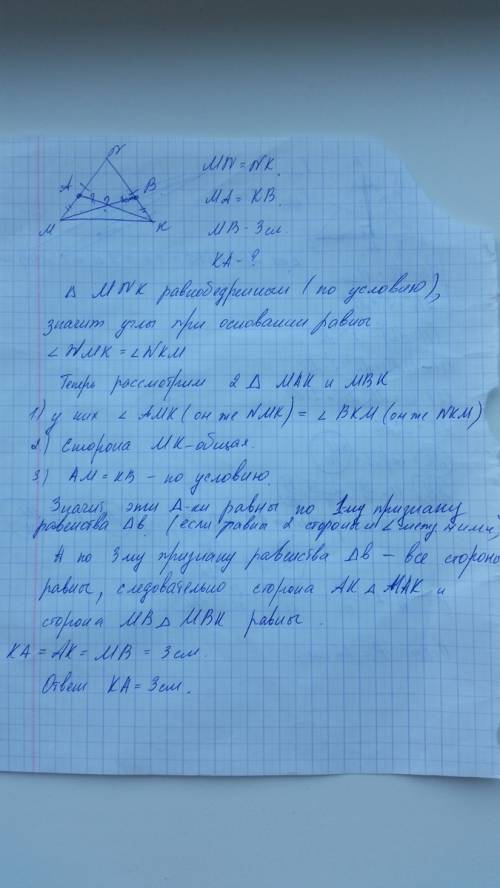 N
A
B
M
K
MN = NK.
MA = KB.
MB - 3 см.
KA - ?
Δ MNK равнобедренный (по условию),
значит углы при основании равны
∠ NMK = ∠ NKM
Теперь рассмотрим 2 Δ MAK и MBK
1) у них ∠ AMK (он же NMK) = ∠ BKM (он же NKM)
2) Сторона MK - общая.
3) AM = KB - по условию.
Значит, эти Δ-ки равны по 1му признаку
равенства Δв (если равны 2 стороны и ∠ между ними)
А по 3му признаку равенства Δв - все стороны
равны, следовательно сторона AK Δ MAK и
сторона MB Δ MBK равны.
KA = AK = MB = 3 см.
Ответ KA = 3 см.